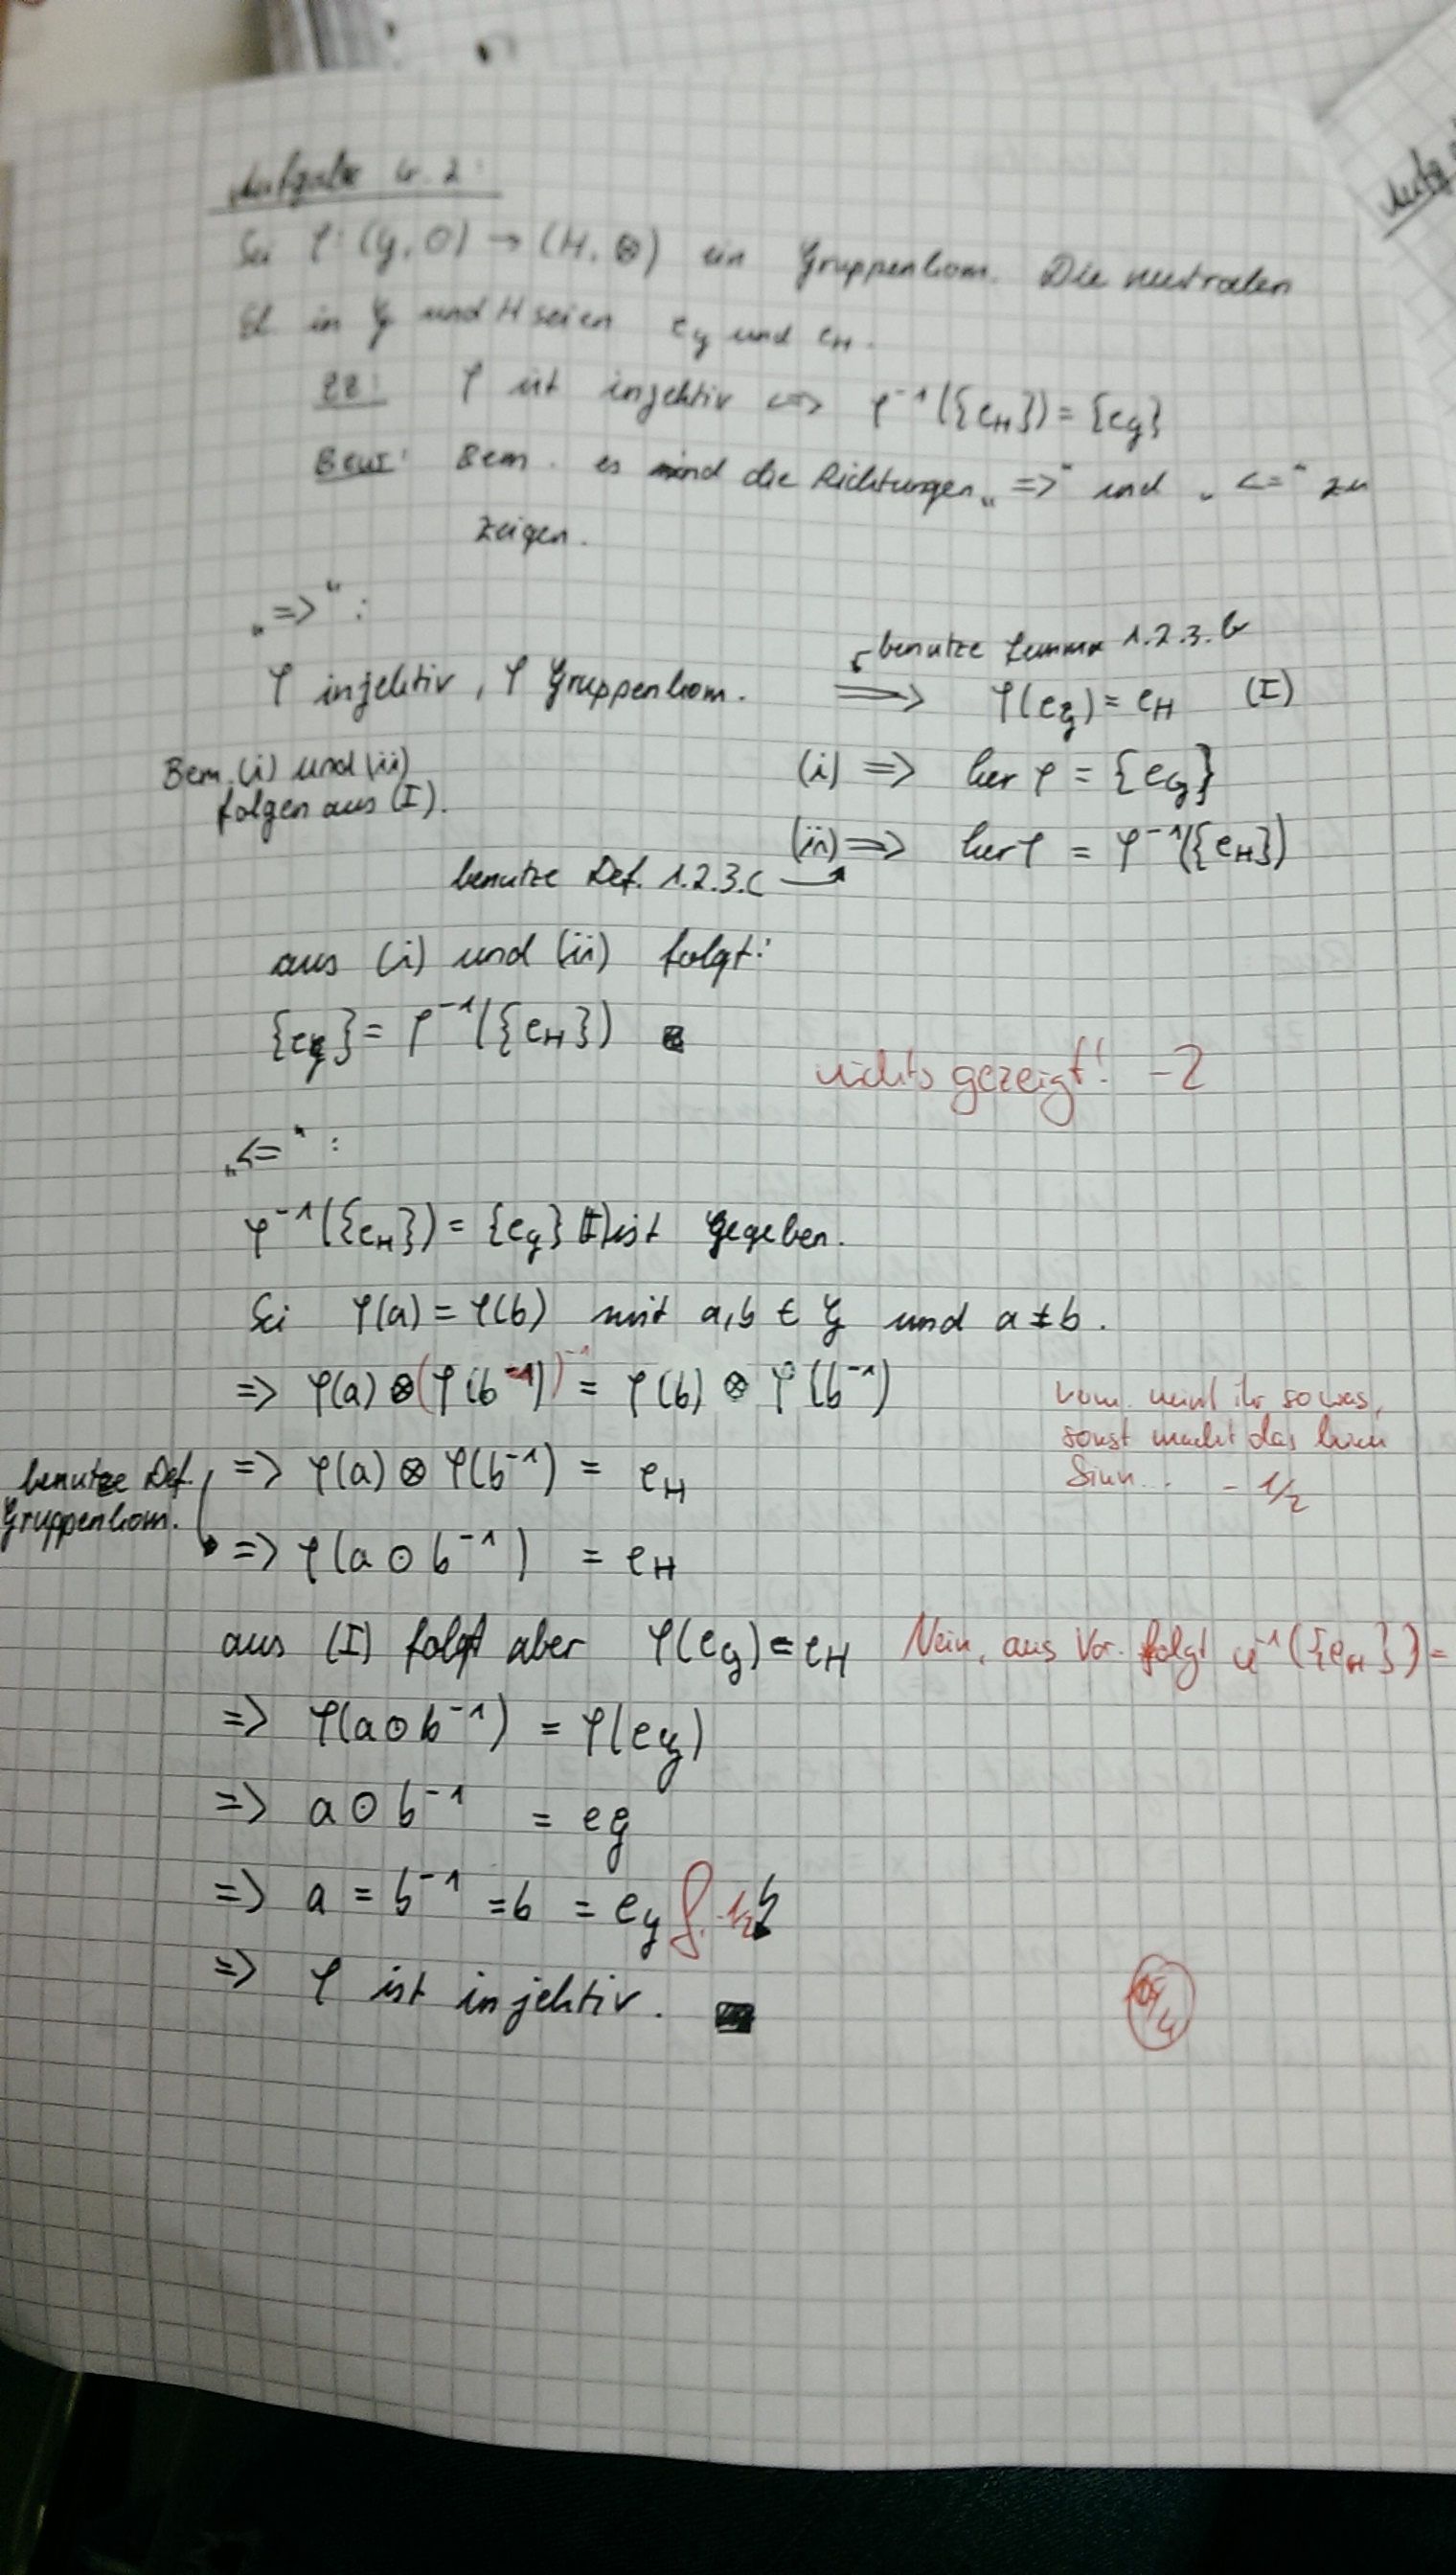 Aufgabe Nr. 2:
Sei φ: (G, ⊙) → (H, ⊗) ein Gruppenhom. Die neutralen
El in G und H seien e_G und e_H.
ZZ: φ ist injektiv <=> φ⁻¹({e_H}) = {e_G}
Bew: Bem. es sind die Richtungen „=>“ und „<=“ zu
zeigen.
„=>“:
benutze Lemma 1.2.3.b
φ injektiv, φ Gruppenhom. => φ(e_G) = e_H (I)
Bem. (i) und (ii)
folgen aus (I).
(i) => ker φ = {e_G}
(ii) => ker φ = φ⁻¹({e_H})
benutze Def. 1.2.3.c
aus (i) und (ii) folgt:
{e_G} = φ⁻¹({e_H})
nichts gezeigt! -2
„<=“:
φ⁻¹({e_H}) = {e_G} (I) ist gegeben.
Sei φ(a) = φ(b) mit a, b ∈ G und a ≠ b.
=> φ(a) ⊗ (φ(b⁻¹))⁻¹ = φ(b) ⊗ φ(b⁻¹)
meint ihr sowas,
sonst macht das kein
Sinn... - 1/2
=> φ(a) ⊗ φ(b⁻¹) = e_H
benutze Def.
Gruppenhom.
=> φ(a ⊙ b⁻¹) = e_H
aus (I) folgt aber φ(e_G) = e_H Nein, aus Vor. folgt φ⁻¹({e_H}) =
=> φ(a ⊙ b⁻¹) = φ(e_G)
=> a ⊙ b⁻¹ = e_G
=> a = b⁻¹ = b = e_G f. -1/2 ↯
=> φ ist injektiv.